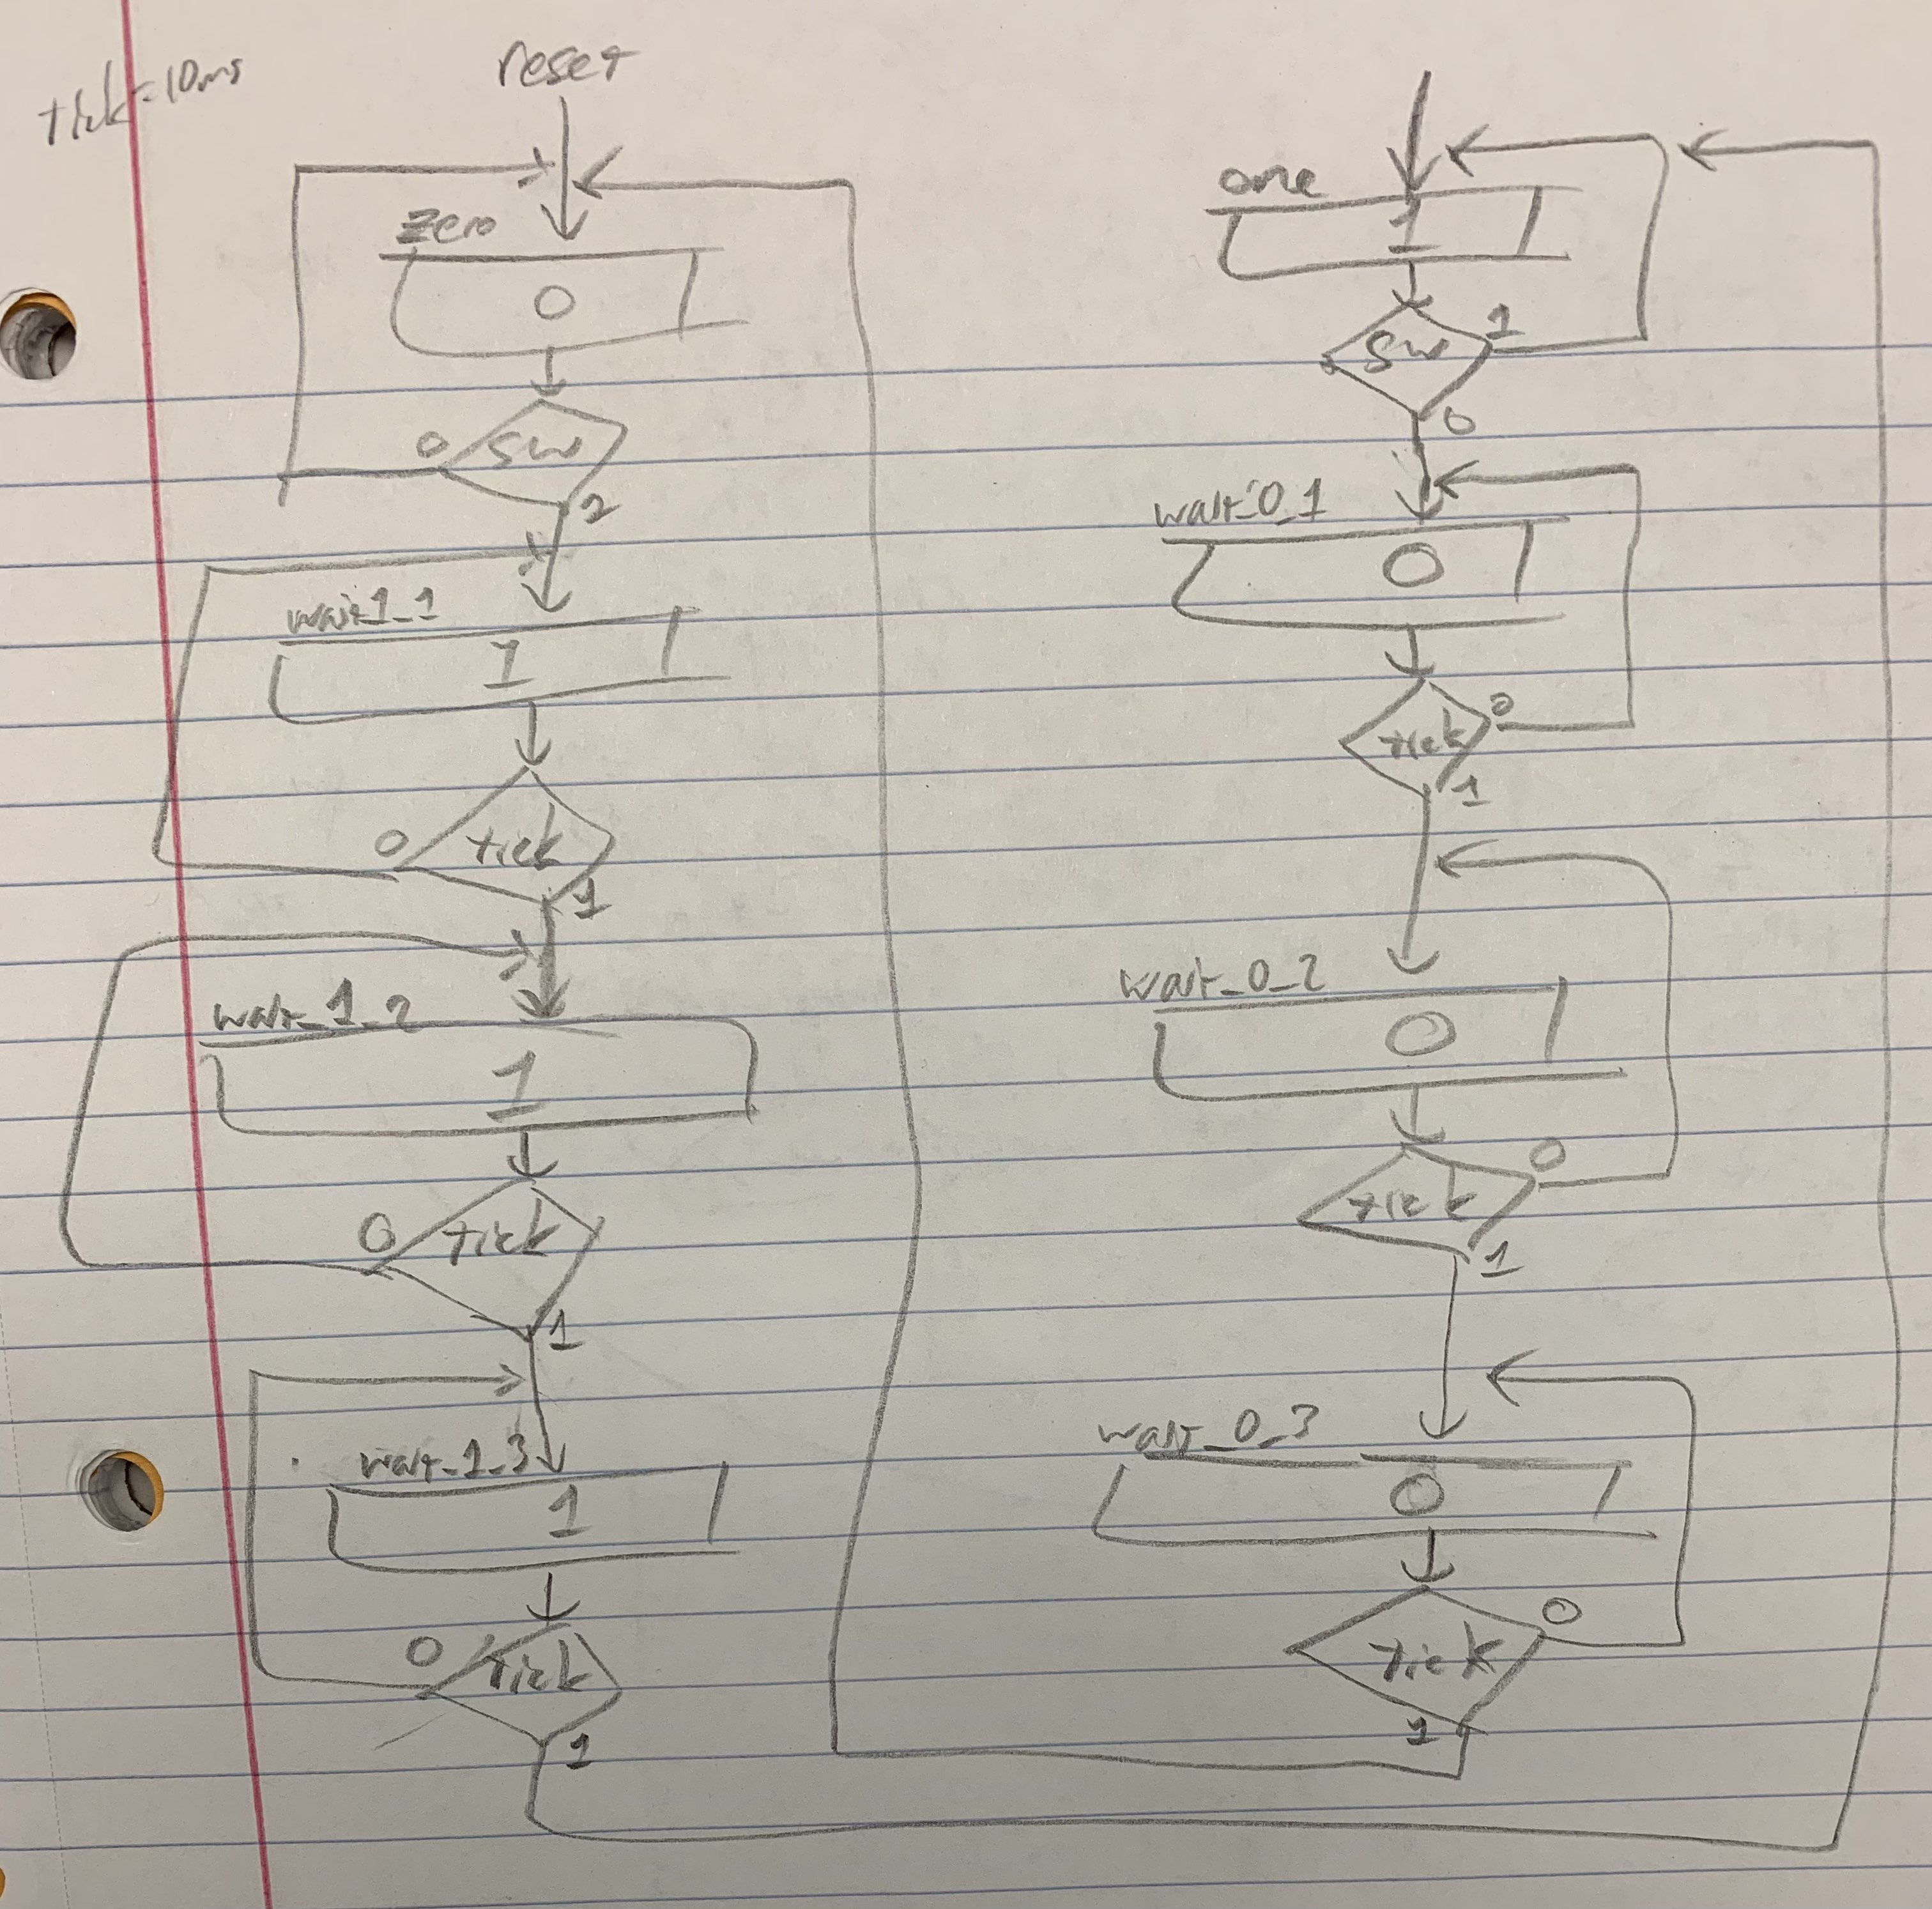 tick=10ms
reset
zero
0
0 sw
1
wait1_1
1
0 tick
1
wait_1_2
1
0 tick
1
wait_1_3
1
0 tick
1
one
1
sw 1
0
wait_0_1
0
tick 0
1
wait_0_2
0
tick 0
1
wait_0_3
0
tick 0
1